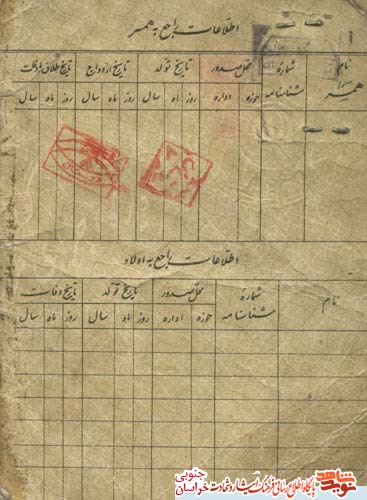 اطلاعات راجع به همسر
نام همسر
شماره شناسنامه
محل صدور
تاریخ تولد
تاریخ ازدواج
تاریخ طلاق یا وفات
حوزه اداره روز ماه سال روز ماه سال روز ماه سال
اطلاعات راجع به اولاد
نام
شماره شناسنامه
محل صدور
تاریخ تولد
تاریخ وفات
حوزه اداره روز ماه سال روز ماه سال
نوید شاهد
پایگاه اطلاع رسانی فرهنگ ایثار و شهادت
خراسان جنوبی